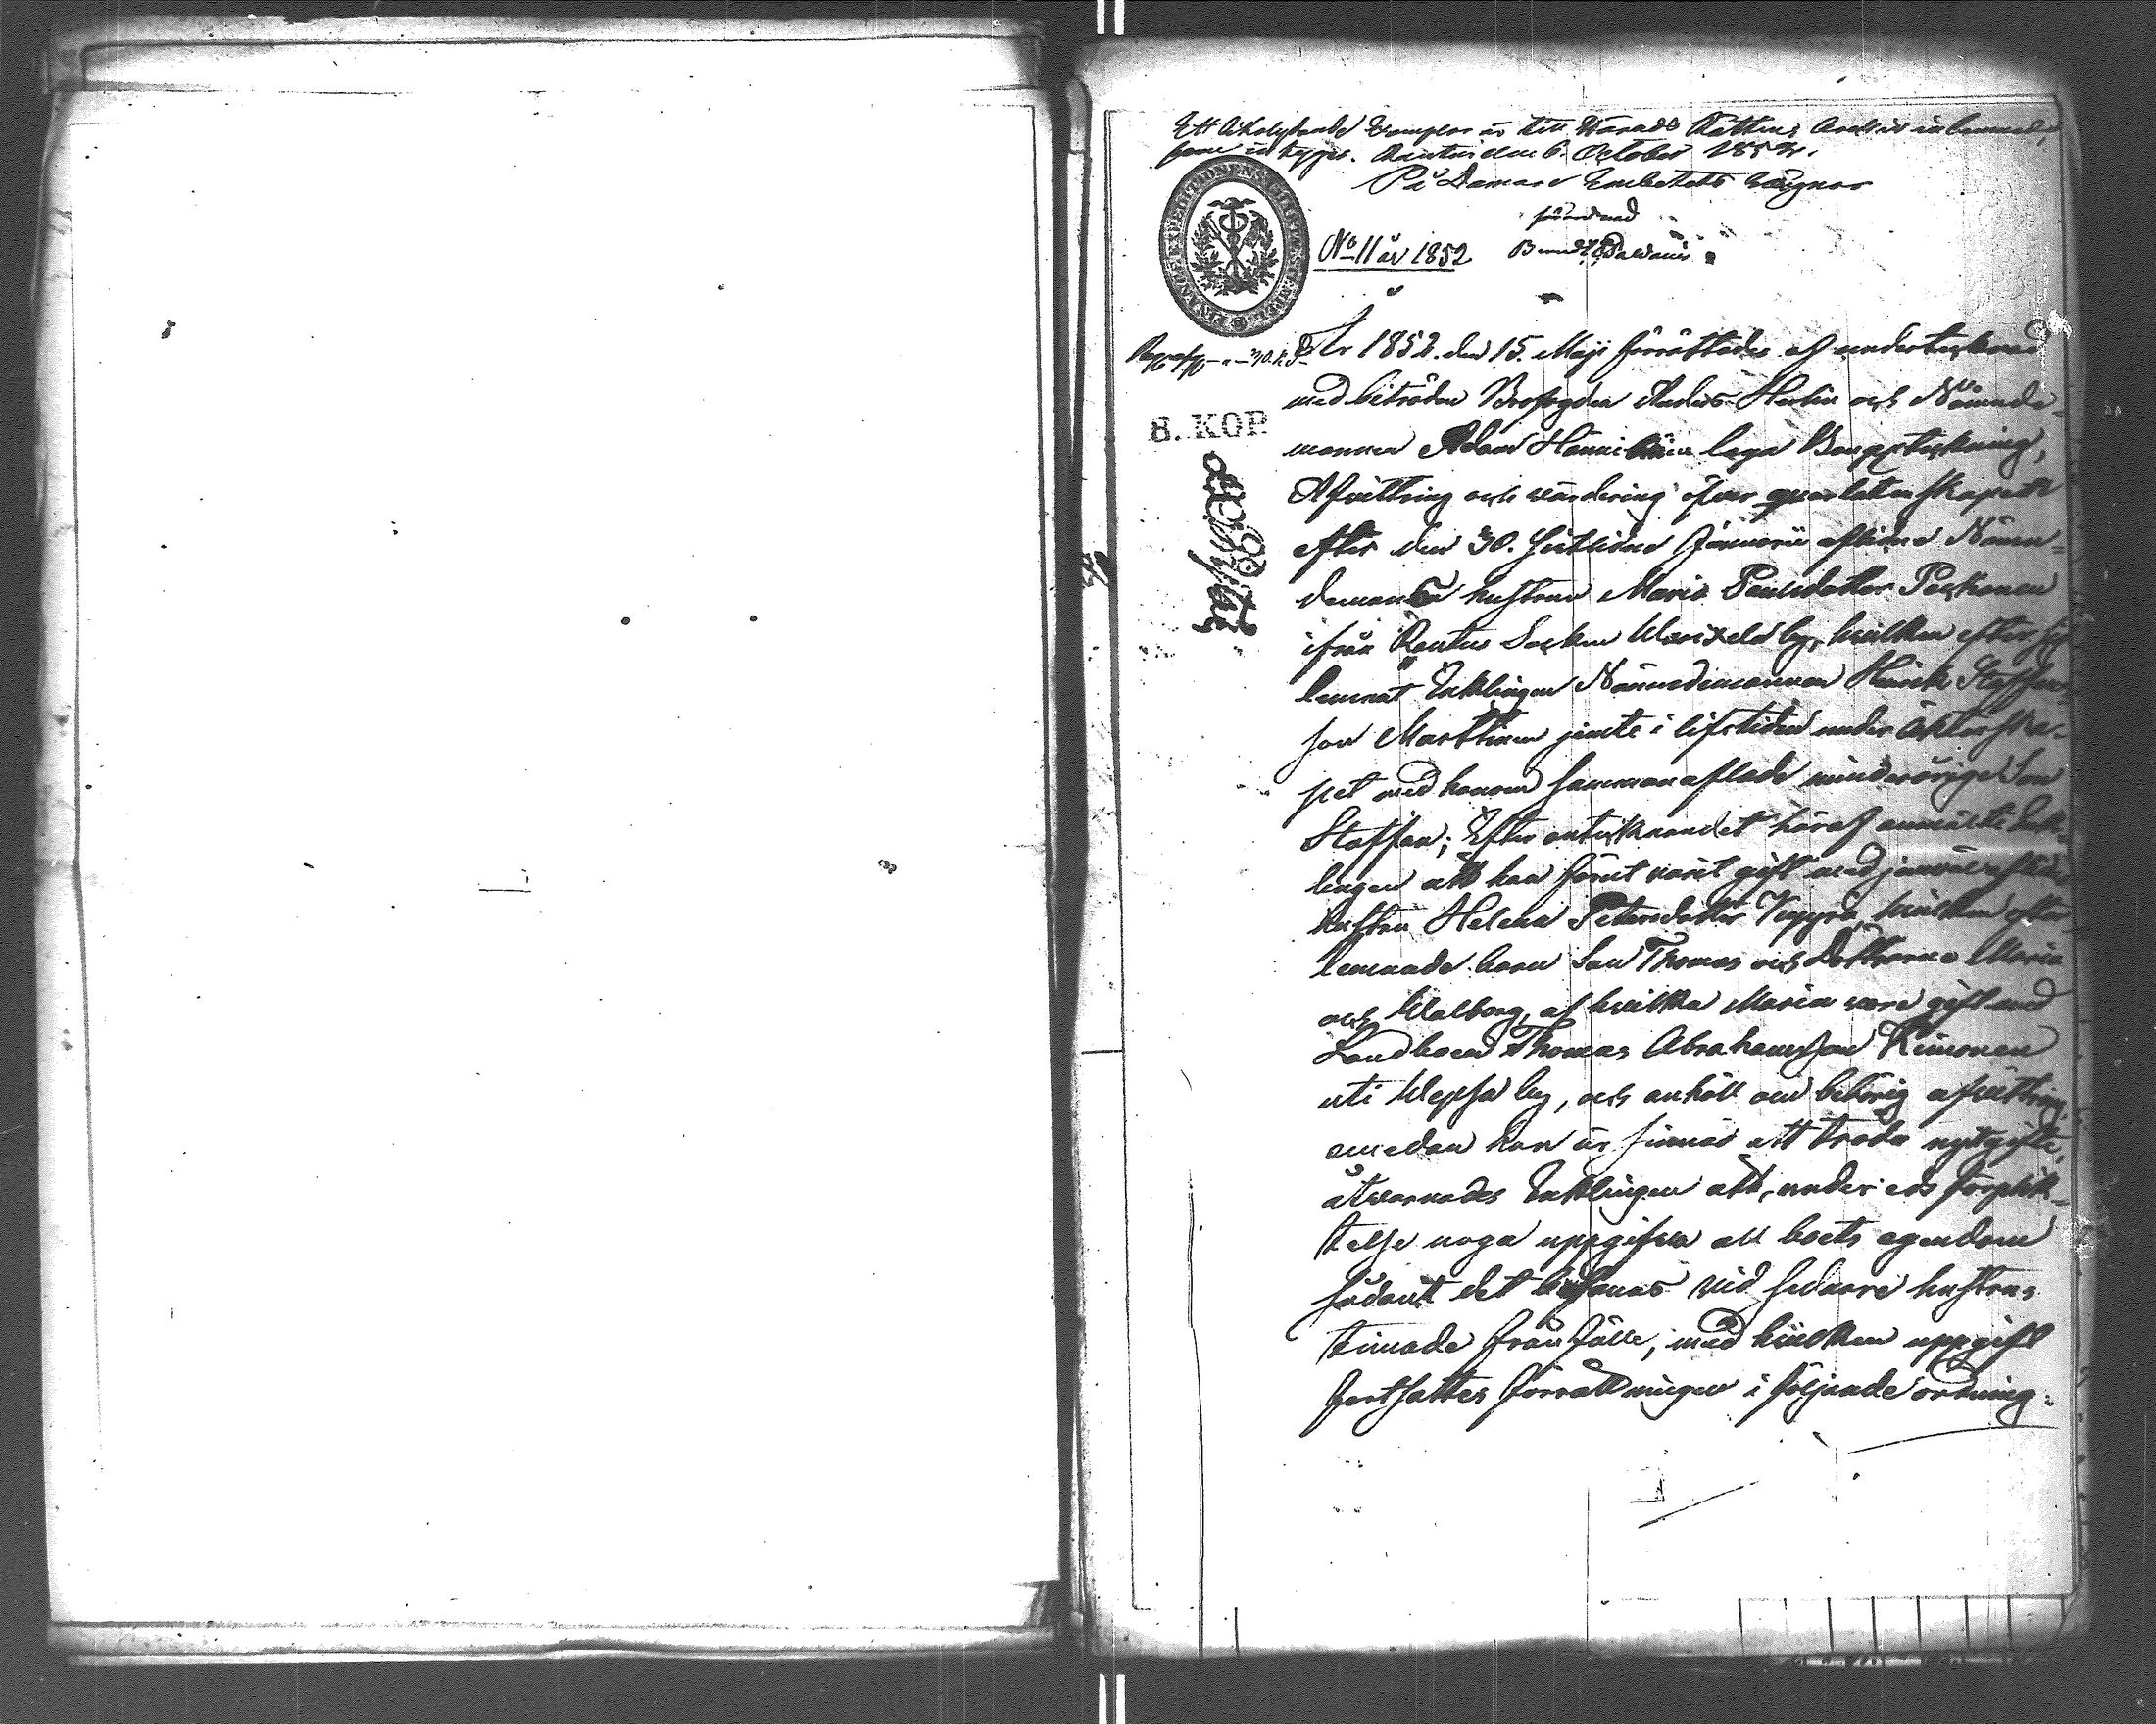 Ett likalydande Exemplar är till Härads Rättens Archiv inlemnadt,
som intygas. Rautus den 6. October 1852.
På Domare Embetets vägnar
FINANS EXPEDITIONENS
No 11 år 1852
År 1852. den 15. Maji förrättades af undertecknad
8. KOP.
med biträden Brofogden Anders Herlin och Nämnde-
mannen Adam Hännikäinen laga Bouppteckning,
Afvittring och värdering öfver qvarlåtenskapen
efter den 30. sistlidne Januarii aflidne Nämn-
demans hustrun Maria Paulsdotter Peskonen
ifrån Rautus Socken by, hvilken efter sig
lemnat Enklingen Nämndemannen Henrik Staffans-
son Marttinen jemte i lifstiden under äktenska-
pet med honom sammanaflade minderårige Son
Staffan; Efter antecknandet häraf anmälte Enk-
lingen att han förut varit gift med jemväl aflidne
hustru Helena Petersdotter Vepsä, hvilken efter
lemnade barn Son Thomas och Döttrarne Maria
och Walborg, af hvilka Maria vore gift med
Landboen Thomas Abrahamsson Kimonen
uti by, och anhöll om behörig afvittring,
emedan han är sinnad att träda nytt gifte,
åtvarnades Enklingen att, under eds förplik-
telse noga uppgifva all boets egendom
sådant det befanns vid sednare hustruns
timade frånfälle, med hvilken uppgift
fortsattes förrättningen i följande ordning: